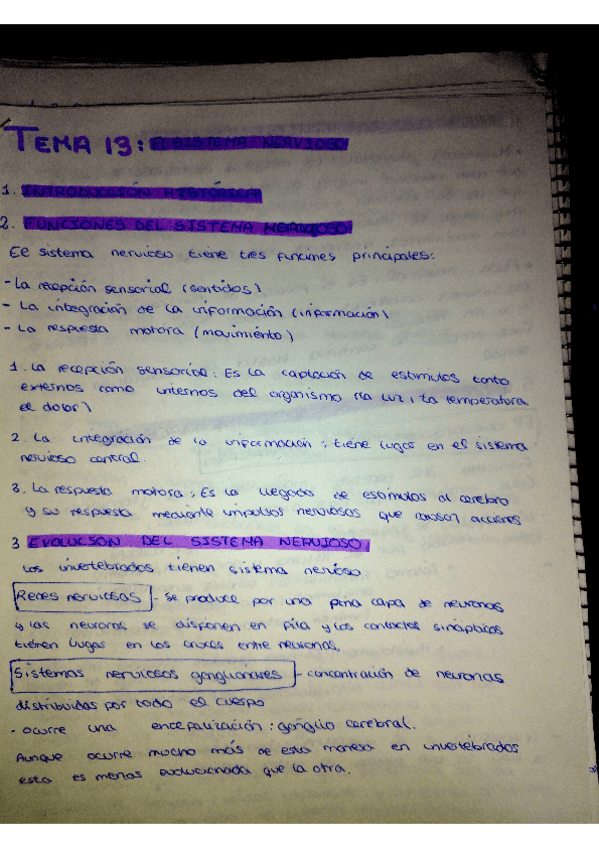 TEMA 13: EL SISTEMA NERVIOSO
1. INTRODUCCIÓN HISTÓRICA
2. FUNCIONES DEL SISTEMA NERVIOSO
El sistema nervioso tiene tres funciones principales:
- La recepción sensorial (sentidos)
- La integración de la información (información)
- La respuesta motora (movimiento)
1. La recepción sensorial: Es la captación de estimulos tanto
externos como internos del organismo (la luz, la temperatura
el dolor)
2. La integración de la información: tiene lugar en el sistema
nervioso central.
3. La respuesta motora: Es la llegada de estímulos al cerebro
y su respuesta mediante impulsos nerviosos que causan acciones
3 EVOLUCION DEL SISTEMA NERVIOSO
Los invertebrados tienen sistema nervioso
Redes nerviosas - se produce por una fina capa de neuronas
y las neuronas se disponen en fila y los contactos sinápticos
tienen lugar en los cruces entre neuronas.
Sistemas nerviosos ganglionares - concentración de neuronas
distribuidas por todo el cuerpo
- ocurre una encefalización: ganglio cerebral.
Aunque ocurre mucho más de esta manera en invertebrados
esta es menos evolucionada que la otra.